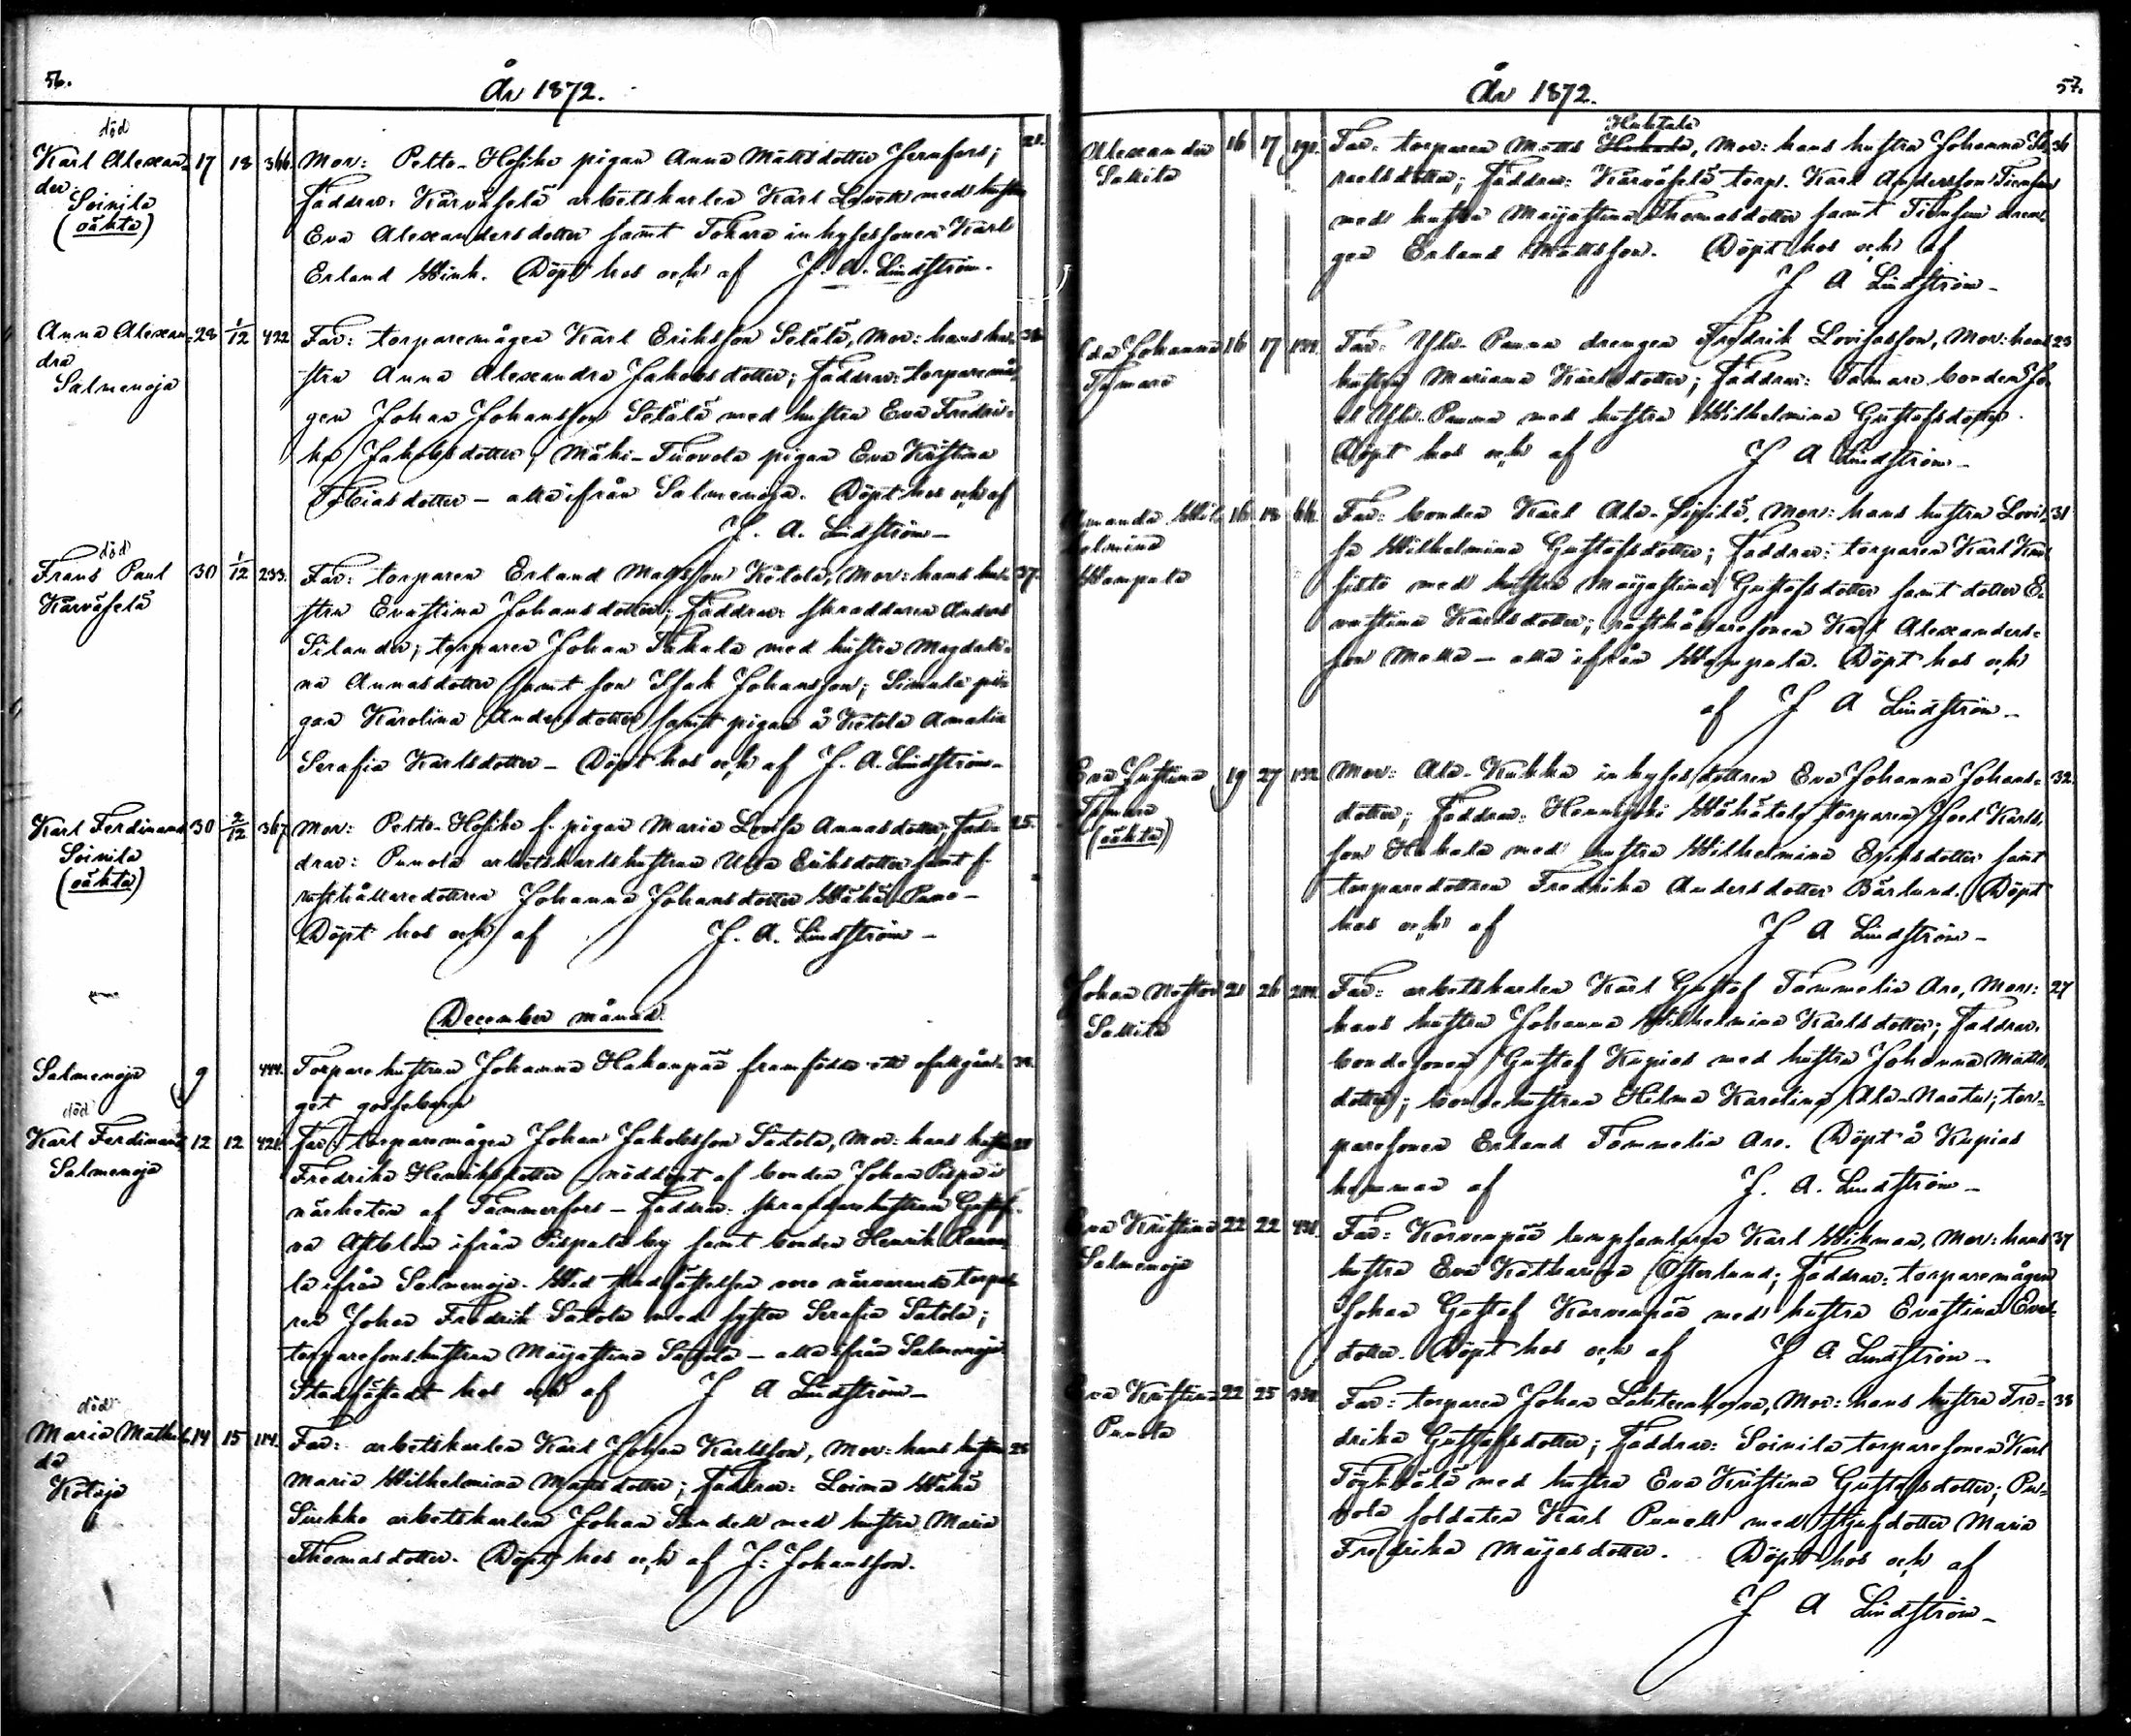 56.
År 1872.
död
Karl Alexan- 17 18 366. Mor: Petto-Hosike pigan Anna Mattsdotter Jernfors; 21.
der
Soinila
(oäkta)
Faddrar: Kärväselä arbetskarlen Karl med hustru
Eva Alexandersdotter samt Tokara inhysessonen Karl
Erland Wink. Döpt hos och af J. A. Lindström.
Anna Alexan- 28 1/12 422 Far: torparemågen Karl Eriksson Setälä, Mor: hans hu-
dra
Salmenoja
stru Anna Alexandra Jakobsdotter; Faddrar: torparemå-
gen Johan Johansson Setälä med hustru Eva Fredri-
ka Jakobsdotter; Mäki-Tuovola pigan Eva Kristina
Tobiasdotter – alla ifrån Salmenoja. Döpt hos och af
J. A. Lindström –
död
Frans Paul 30 1/12 233. Far: torparen Erland Mattsson Ketola, Mor: hans hu- 37.
Kärväselä
stru Evastina Johansdotter; Faddrar: skräddaren Anders
Silander; torparen Johan Takala med hustru Magdale-
na Annasdotter samt son Isak Johansson; Simula pi-
gan Karolina Andersdotter samt pigan å Ketola Amalia
Serafia Karlsdotter – Döpt hos och af J. A. Lindström –
Karl Ferdinand 30 2/12 367. Mor: Petto-Hosike f. pigan Maria Lovisa Annasdotter; Fad- 25.
Soinila
(oäkta)
drar: Punola arbetskarlshustrun Ulla Eriksdotter samt f.
rusthållaredottren Johanna Johansdotter Wähä Pano –
Döpt hos och af J. A. Lindström –
December månad.
Salmenoja 9 444. Torparehustrun Johanna Hakanpää framfödde ett ofullgån-
get gossebarn
död
Karl Ferdinand 12 12 421. Far: torparemågen Johan Jakobsson Satola, Mor: hans hustru
Salmenoja
Fredrika Henriksdotter – nöddöpt af bonden Johan Pispa i
närheten af Tammerfors – Faddrar: skräddarehustrun Gustaf-
va ifrån Pispala by samt bonden Henrik
la ifrån Salmenoja. Wid stadfästelsen voro närvarande torpa-
ren Johan Fredrik Satola med syster Serafia Satola;
torparesonshustrun Majastina Satola – alla ifrån Salmenoja
Stadfästadt hos och af J A Lindström –
död
Maria Mathil- 14 15 114. Far: arbetskarlen Karl Johan Karlsson, Mor: hans hustru 25
da
Kotoja
Maria Wilhelmina Mattsdotter; Faddrar: Loima Wähä
Sirkko arbetskarlen Johan Sundell med hustru Maria
Thomasdotter. Döpt hos och af J: Johansson.
57.
År 1872.
Huhtala
Alexander 16 17 191. Far: torparen Matts Huhtala, Mor: hans hustru Johanna Is- 36
Sallila
raelsdotter; Faddrar: Kärväselä torp. Karl Andersson Tiensuu
med hustru Majastina Thomasdotter samt Tiensuu dren-
gen Erland Mattsson. Döpt hos och af
J A Lindström –
Ida Johanna 16 17 Far: Yli-Panna drengen Fredrik Lovisasson, Mor: hans 23
Tamare
hustru Mariana Karlsdotter; Faddrar: Tamare bonden Jo-
el Yli-Panna med hustru Wilhelmina Gustafsdotter.
Döpt hos och af J A Lindström –
Amanda Wil- 16 18 66. Far: bonden Karl Ala-Sipilä, Mor: hans hustru Lovi- 31
helmina
Wampula
sa Wilhelmina Gustafsdotter; Faddrar: torparen Karl
med hustru Majastina Gustafsdotter samt dotter E-
vastina Karlsdotter; rusthållaresonen Karl Alexanders-
son Matta – alla ifrån Wampula. Döpt hos och
af J A Lindström –
Eva Justina 19 27 132 Mor: Ala-Kukka inhysesdottren Eva Johanna Johans- 32.
Tamare
(oäkta)
dotter; Faddrar: Hennijoki Wähätalo torparen Joel Karls-
son Hakala med hustru Wilhelmina Eriksdotter samt
torparedottren Fredrika Andersdotter Bärlund. Döpt
hos och af J A Lindström –
Johan Nestor 21 26 204. Far: arbetskarlen Karl Gustaf Tammelin Aro, Mor: 27
Sallila
hans hustru Johanna Wilhelmina Karlsdotter; Faddrar:
bondesonen Gustaf Kupias med hustru Johanna Matts-
dotter; bondehustrun Helma Karolina Ala-Naatu; tor-
paresonen Erland Tammelin Aro. Döpt å Kupias
hemman af J. A. Lindström –
Eva Kristina 22 22 438. Far: Korvenpää lumpsamlaren Karl Wikman, Mor: hans 37
Salmenoja
hustru Eva Katharina Österlund; Faddrar: torparemågen
Johan Gustaf Korvenpää med hustru Evastina Evas-
dotter. Döpt hos och af J A Lindström –
Eva Kristina 22 25 338. Far: torparen Johan Lähteenkorva, Mor: hans hustru Fre- 38
Punola
drika Gustafsdotter; Faddrar: Soinila torparesonen Karl
med hustru Eva Kristina Gustafsdotter; Pu-
nola soldaten Karl Punell med styfdotter Maria
Fredrika Majasdotter. Döpt hos och af
J A Lindström –